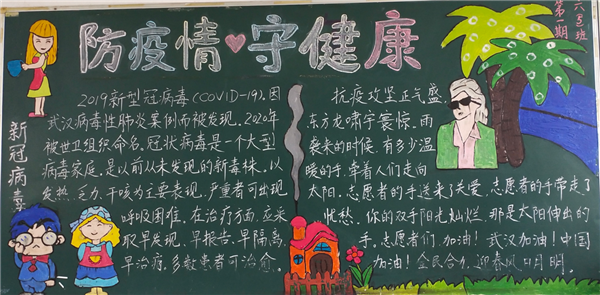 防疫情守健康
六5班
第一期
新冠病毒
2019新型冠病毒(COVID-19),因
武汉病毒性肺炎案例而被发现,2020年
被世卫组织命名。冠状病毒是一个大型
病毒家庭,是以前从未发现的新毒株。以
发热、乏力、干咳为主要表现,严重者可出现
呼吸困难,在治疗方面,应采
取早发现、早报告、早隔离、
早治疗,多数患者可治愈。
抗疫攻坚正气盛,
东方龙啸宇寰惊。雨
袭来的时候,有多少温
暖的手,牵着人们走向
太阳,志愿者的手送来了关爱,志愿者的手带走了
忧愁,你的双手阳光灿烂,那是太阳伸出的
手,志愿者们,加油!武汉加油!中国
加油!全民合力,迎春风日月明。